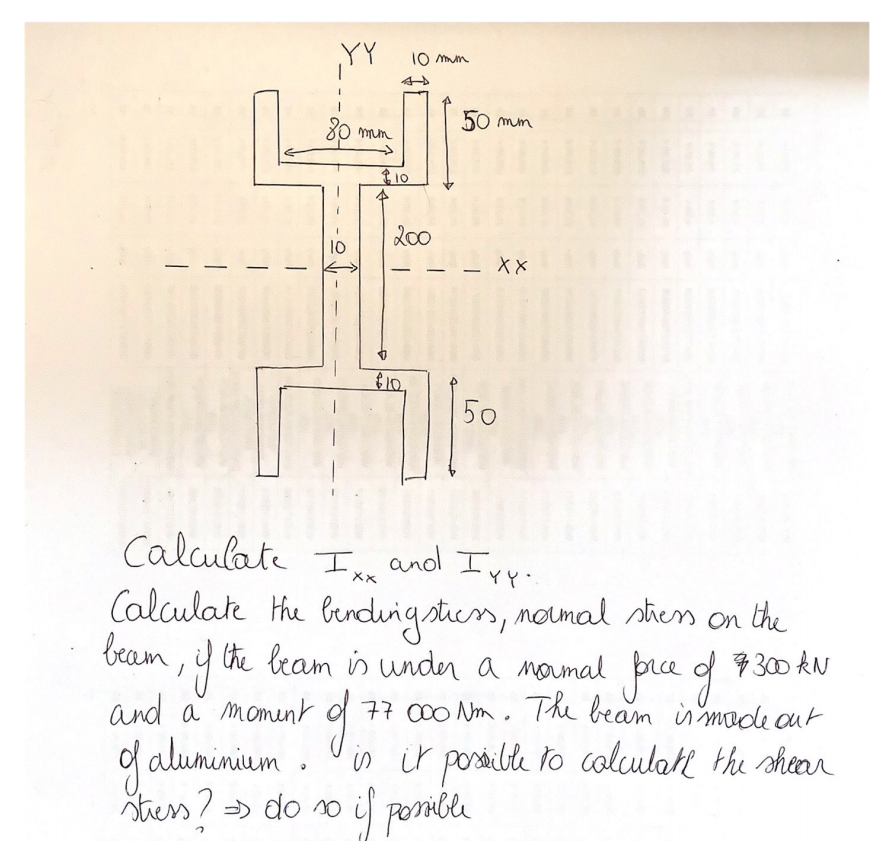 YY
10 mm
50 mm
80 mm
10
200
10
XX
10
50
Calculate Ixx and IYY.
Calculate the bendingstress, normal stress on the
beam, if the beam is under a normal force of 300 kN
and a moment of 77 000 Nm. The beam is made out
of aluminium. is it possible to calculate the shear
stress? => do so if possible